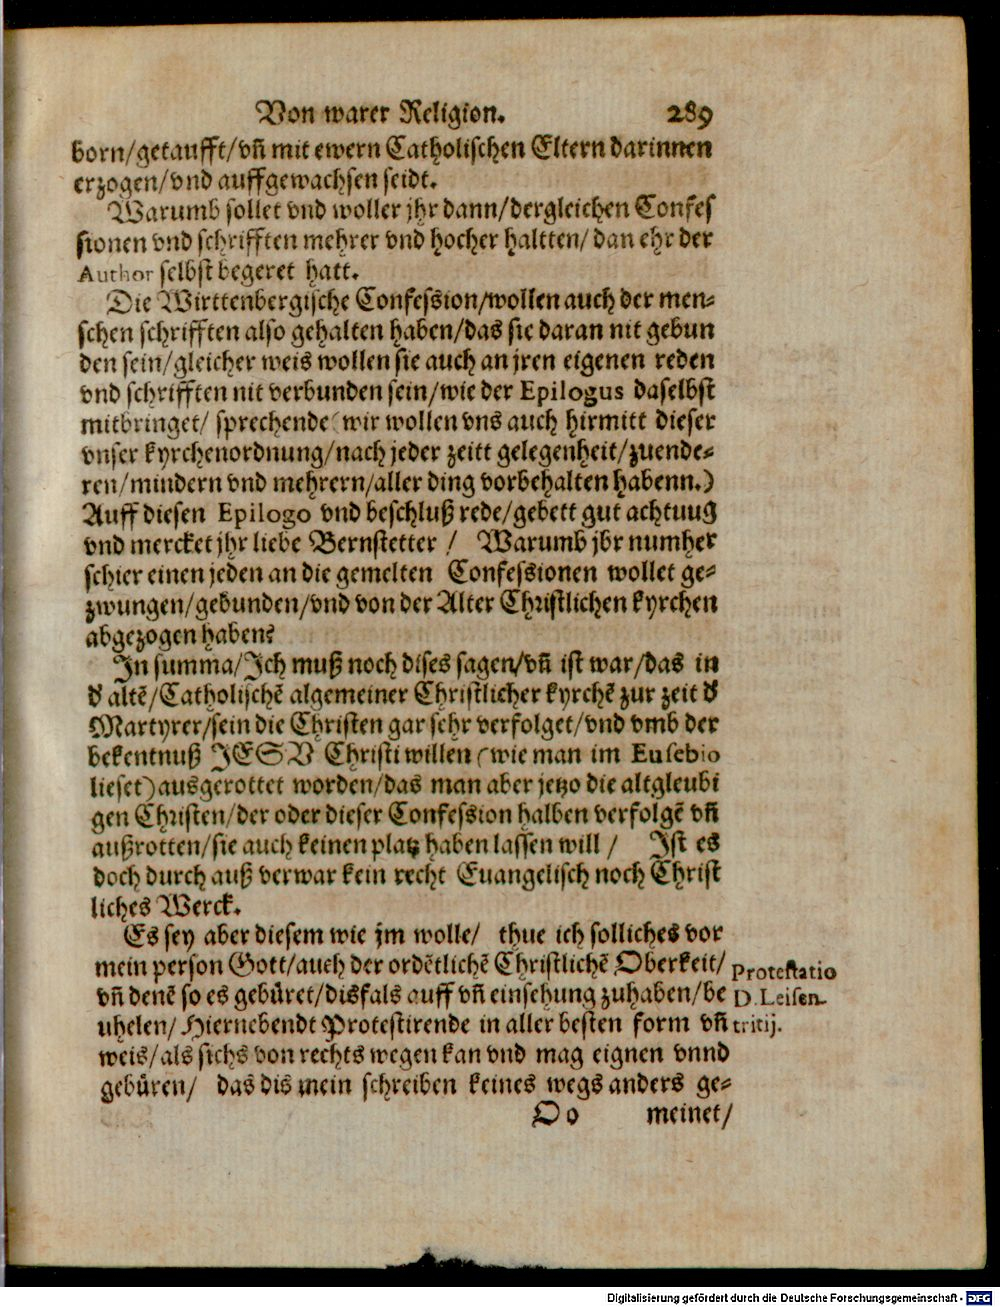 Von warer Religion. 289
born/getaufft/vñ mit ewern Catholischen Eltern darinnen
erzogen/vnd auffgewachsen seidt.
Warumb sollet vnd woller jhr dann/dergleichen Confes
sionen vnd schrifften mehrer vnd hocher haltten/ dan ehr der
Author selbst begeret hatt.
Die Wirttenbergische Confession/wollen auch der men-
schen schrifften also gehalten haben/das sie daran nit gebun
den sein/gleicher weis wollen sie auch an jren eigenen reden
vnd schrifften nit verbunden sein/wie der Epilogus daselbst
mitbringet/ sprechende (wir wollen vns auch hirmitt dieser
vnser kyrchenordnung/nach jeder zeitt gelegenheit/zuende-
ren/mindern vnd mehrern/aller ding vorbehalten habenn.)
Auff diesen Epilogo vnd beschluß rede/gebett gut achtuug
vnd mercket jhr liebe Bernstetter / Warumb jbr numher
schier einen jeden an die gemelten Confessionen wollet ge-
zwungen/gebunden/vnd von der Alter Christlichen kyrchen
abgezogen haben?
In summa/Ich muß noch dises sagen/vñ ist war/das in
d' altē/Catholischē algemeiner Christlicher kyrchē zur zeit d'
Martyrer/sein die Christen gar sehr verfolget/vnd vmb der
bekentnuß JESV Christi willen (wie man im Eusebio
lieset) ausgerottet worden/das man aber jetzo die altgleubi
gen Christen/der oder dieser Confession halben verfolgē vñ
außrotten/sie auch keinen platz haben lassen will / Ist es
doch durch auß verwar kein recht Euangelisch noch Christ
liches Werck.
Es sey aber diesem wie jm wolle/ thue ich solliches vor
mein person Gott/auch der ordētlichē Christlichē Oberkeit/
vñ denē so es gebüret/disfals auff vñ einsehung zuhaben/be
uhelen/ Hiernebendt Protestirende in aller besten form vñ
weis/als sichs von rechts wegen kan vnd mag eignen vnnd
gebüren/ das dis mein schreiben keines wegs anders ge-
Protestatio
D. Leisen-
tritij.
Oo meinet/
Digitalisierung gefördert durch die Deutsche Forschungsgemeinschaft - DFG